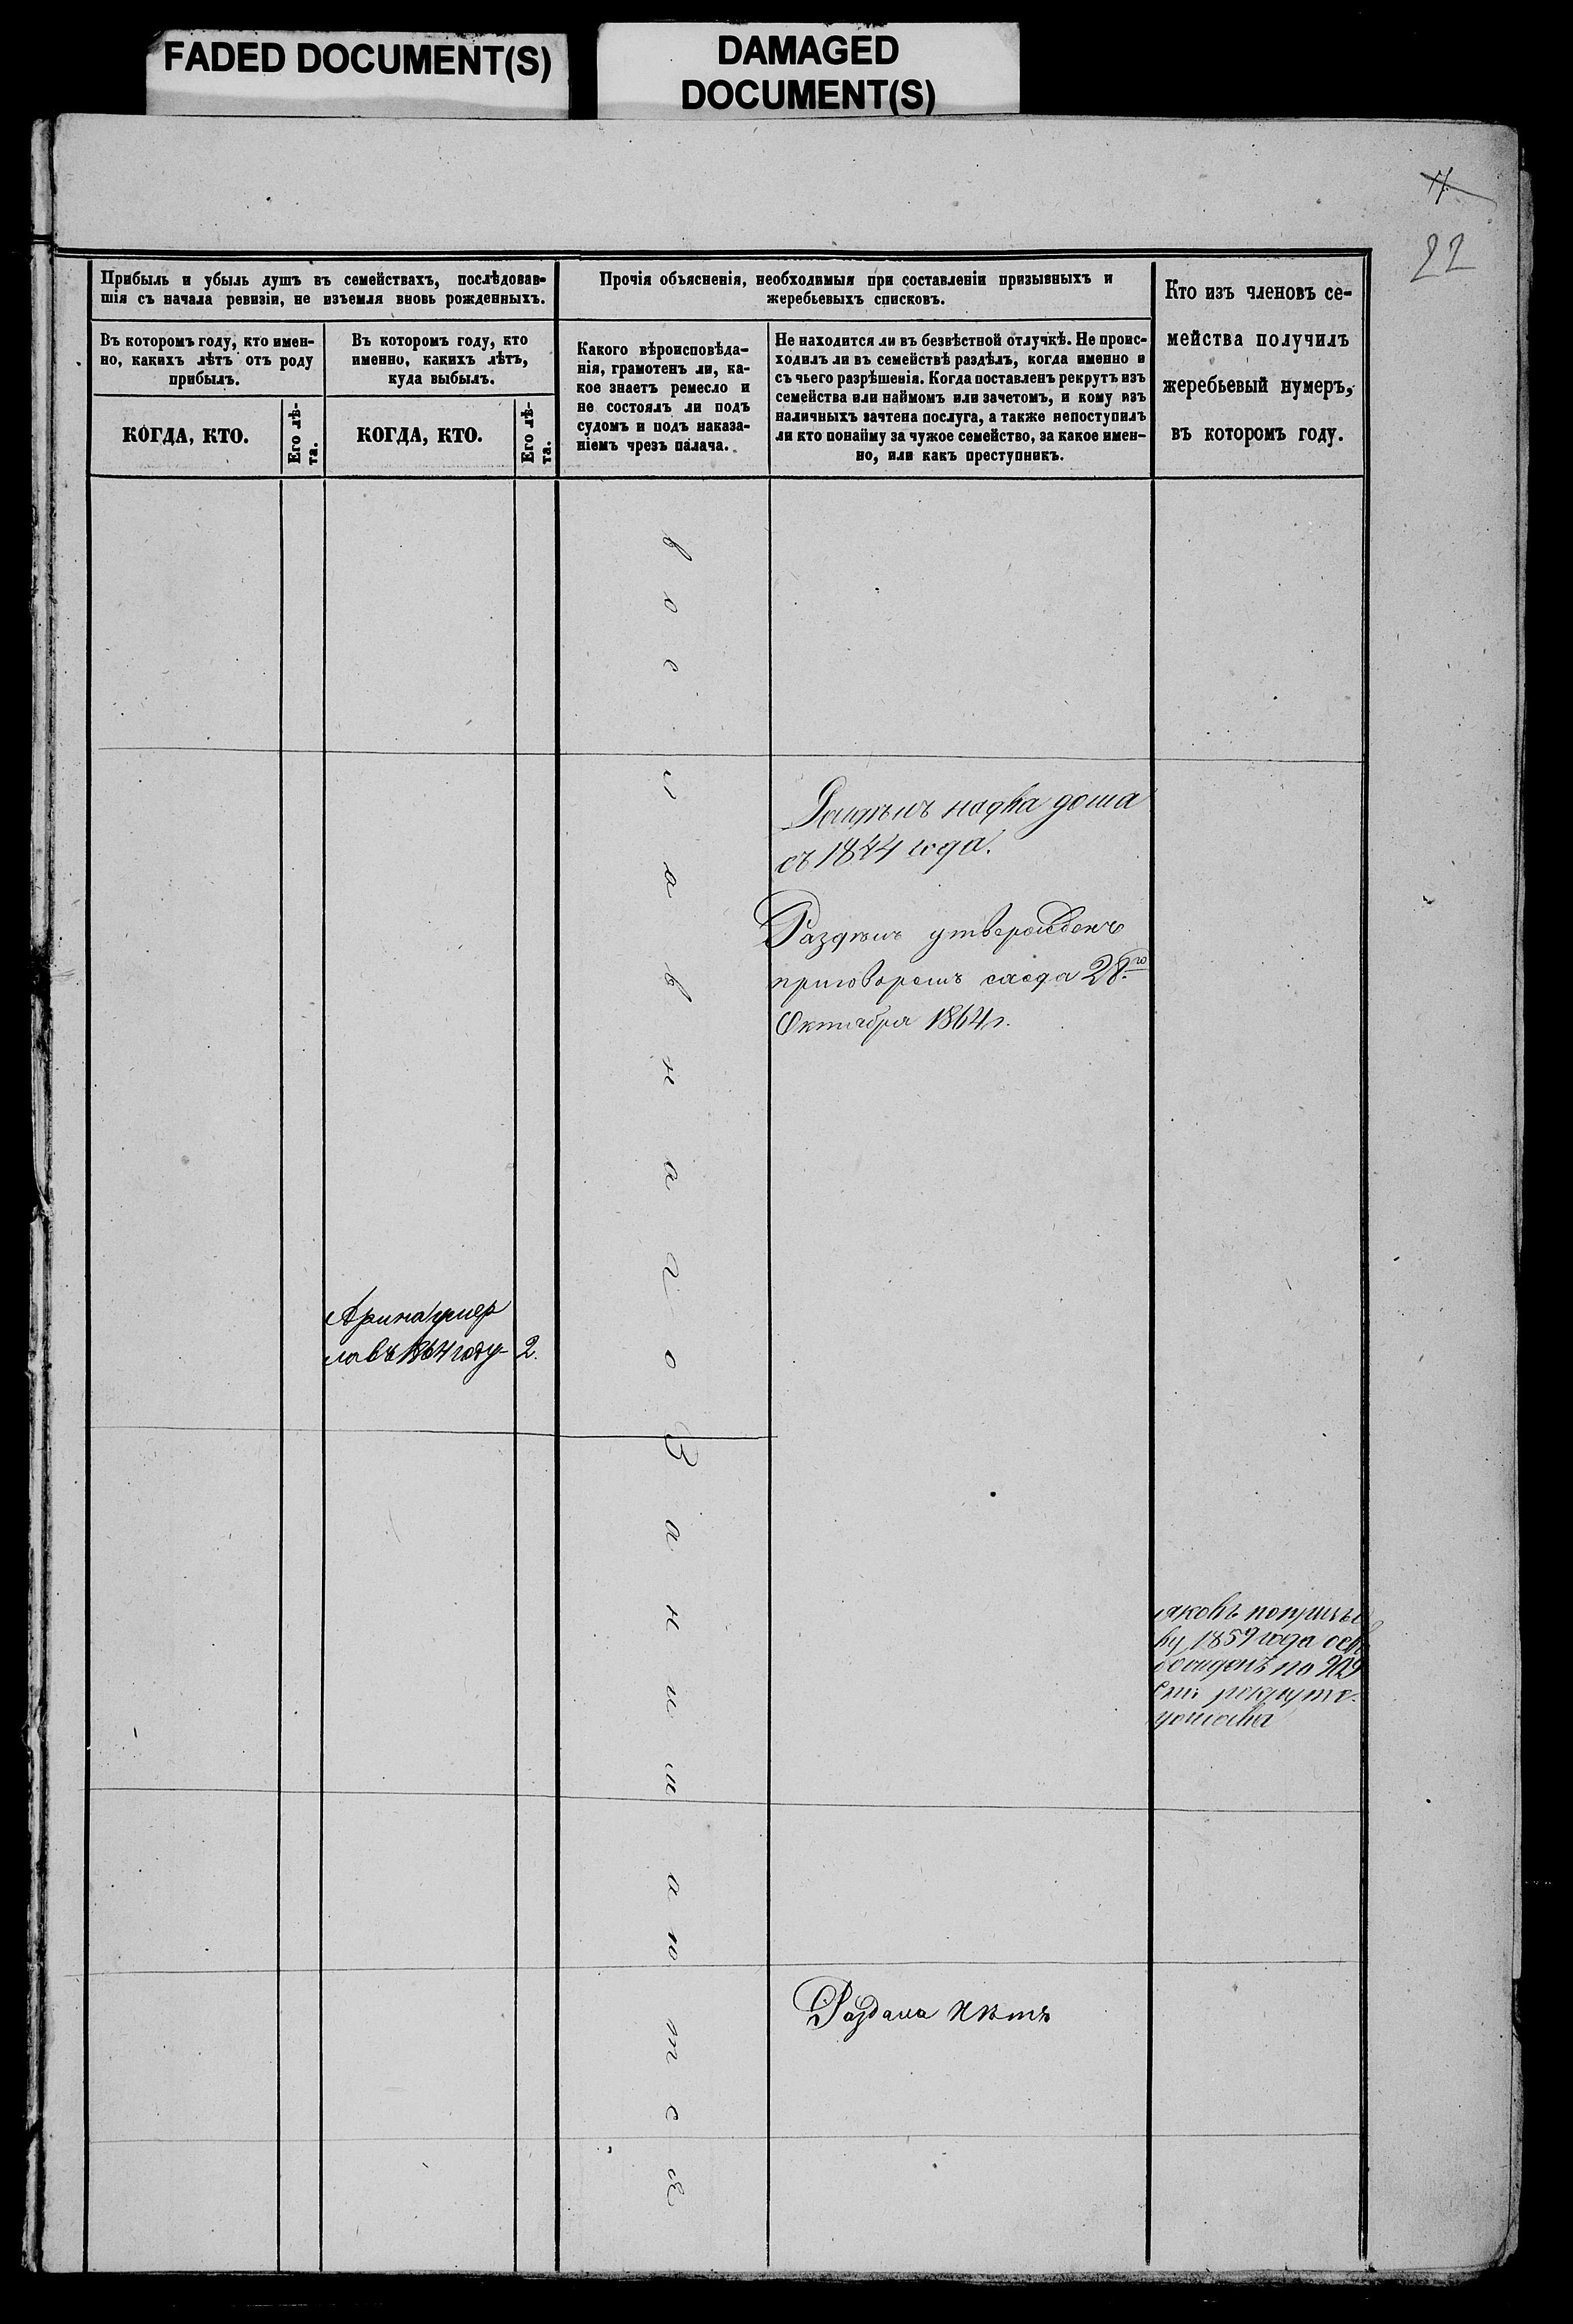 FADED DOCUMENT(S)
DAMAGED
DOCUMENT(S)
22
Прибыль и убыль душъ въ семействахъ, послѣдовав-
шія съ начала ревизіи, не изъемля вновь рожденныхъ.
Въ которомъ году, кто имен-
но, какихъ лѣтъ отъ роду
прибылъ.
КОГДА, КТО.
Его лѣ-
та.
Въ которомъ году, кто
именно, какихъ лѣтъ,
куда выбылъ.
КОГДА, КТО.
Его лѣ-
та.
Прочія объясненія, необходимыя при составленіи призывныхъ и
жеребьевыхъ списковъ.
Какого вѣроисповѣда-
нія, грамотенъ ли, ка-
кое знаетъ ремесло и
не состоялъ ли подъ
судомъ и подъ наказа-
ніемъ чрезъ палача.
Не находится ли въ безвѣстной отлучкѣ. Не проис-
ходилъ ли въ семействѣ раздѣлъ, когда именно и
съ чьего разрѣшенія. Когда поставленъ рекрутъ изъ
семейства или наймомъ или зачетомъ, и кому изъ
наличныхъ зачтена послуга, а также непоступилъ
ли кто понайму за чужое семейство, за какое имен-
но, или какъ преступникъ.
Кто изъ членовъ се-
мейства получилъ
жеребьевый нумеръ,
въ которомъ году.
надва дома
съ 1844 года.
Раздѣлъ утвержденъ
приговоромъ схода 28го
Октября 1864 г.
Арина умер
ла въ 1864 году 2.
Яковъ попризы
ву 1859 года осво
божденъ по
рекрутс.
устава
Раздѣла нѣтъ